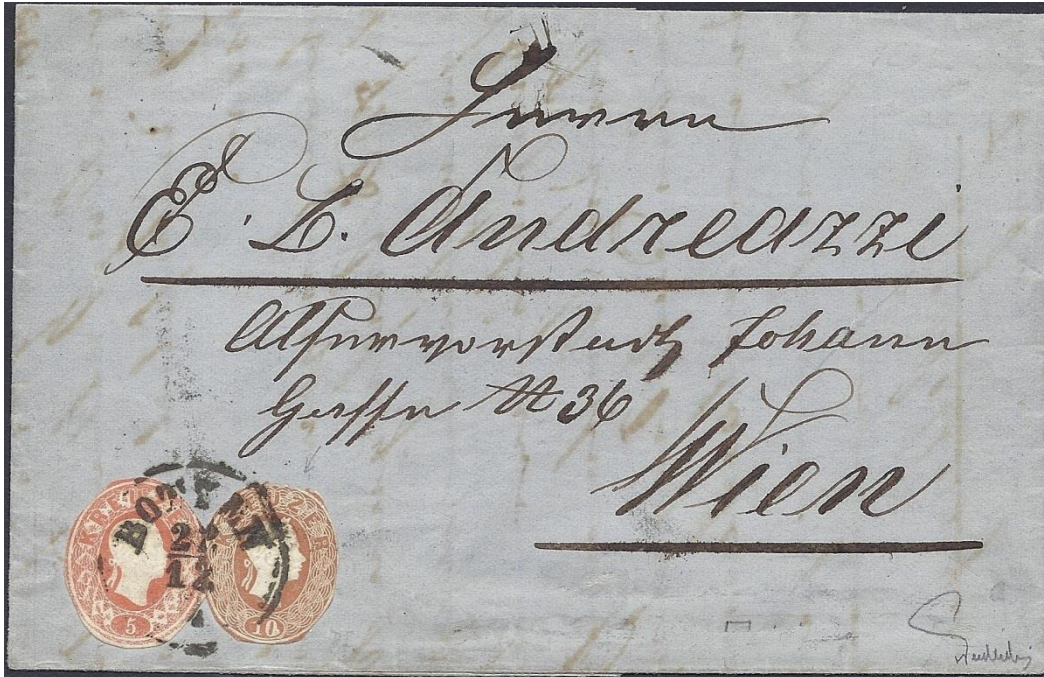 Herrn
E. L. Andreazzi
Alservorstadt Johann
Gasse N 36
Wien
BOTZEN
12
5
10